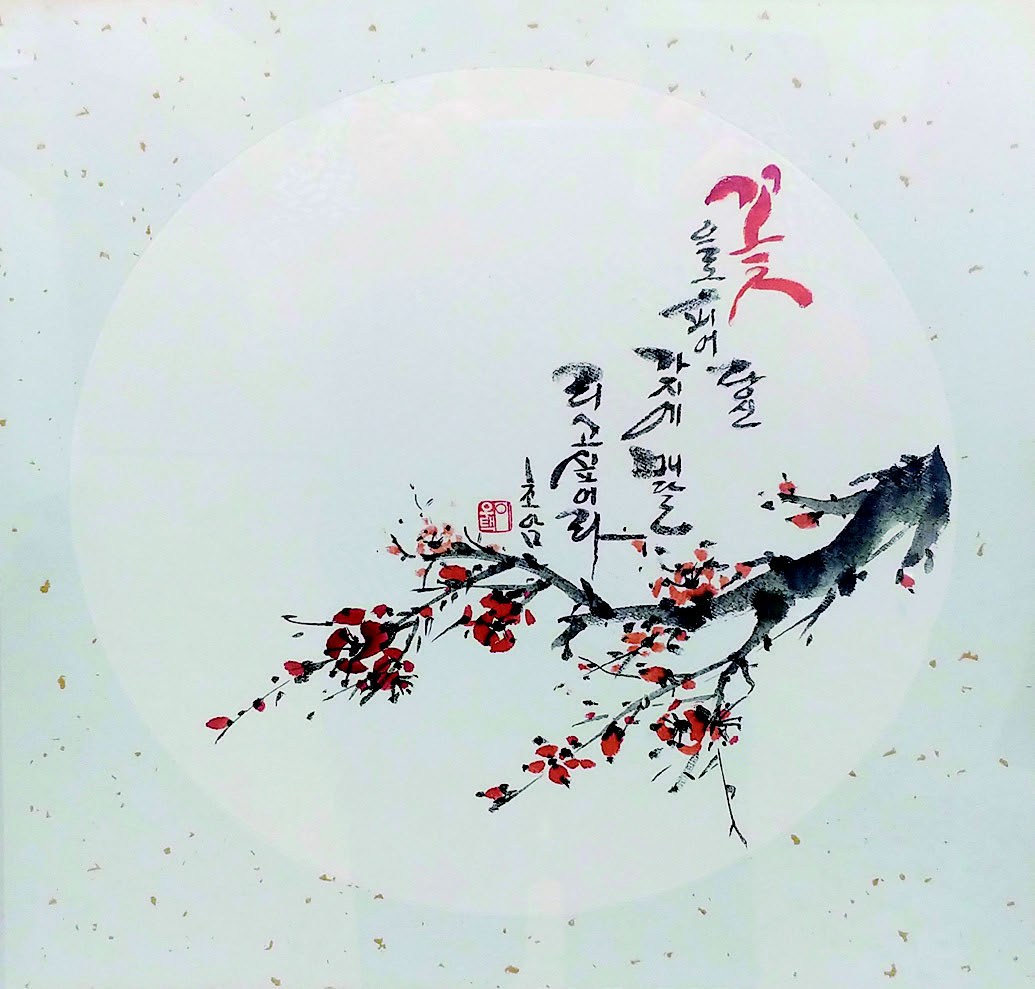 꽃
으로 피어
당신
가지에 매달
리고싶어라
초암